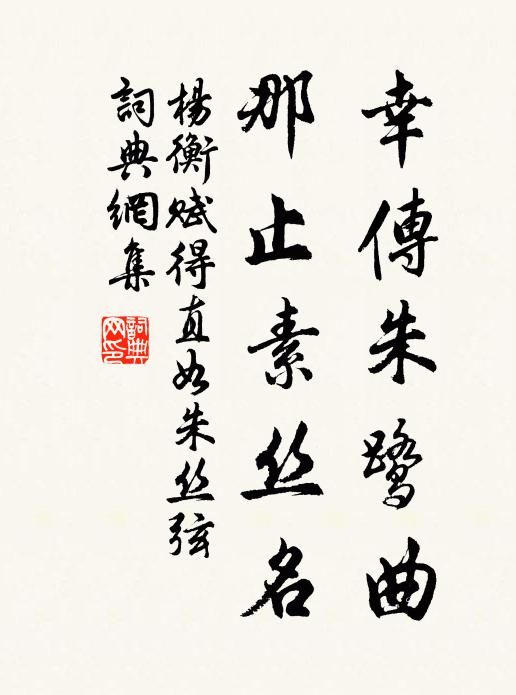 幸傳朱鷺曲
那止素丝名
楊衡赋得直如朱丝弦
詞典網集
詞典
网印